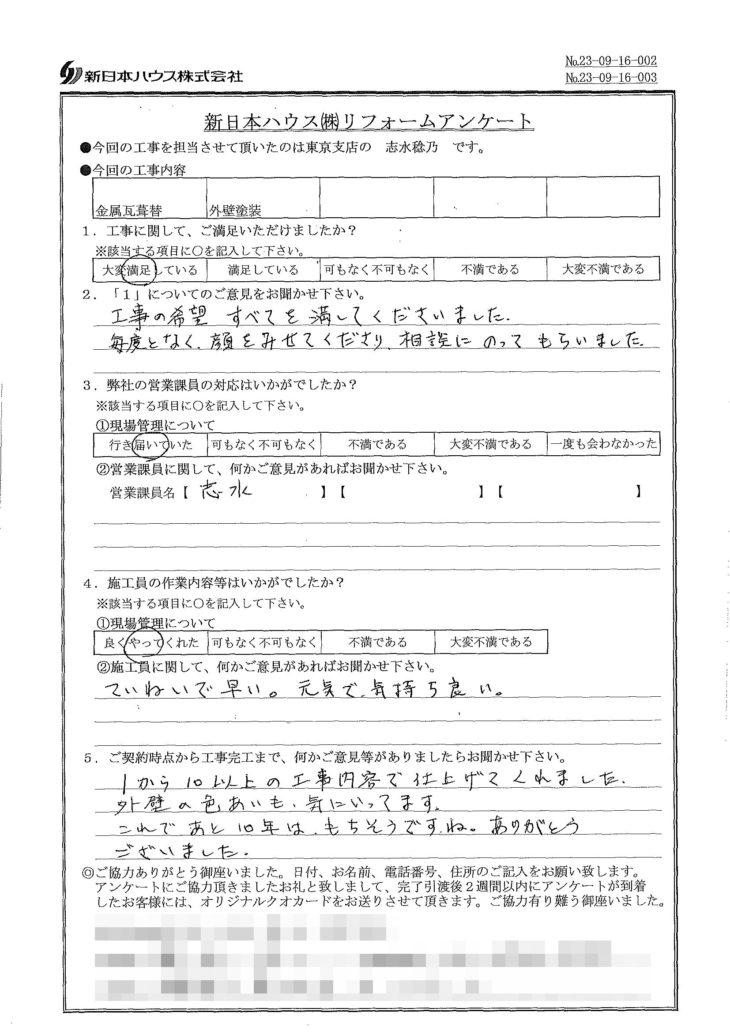 新日本ハウス株式会社
№23-09-16-002
№23-09-16-003
新日本ハウス㈱リフォームアンケート
●今回の工事を担当させて頂いたのは東京支店の 志水稔乃 です。
●今回の工事内容
金属瓦葺替 外壁塗装
1．工事に関して、ご満足いただけましたか？
※該当する項目に○を記入して下さい。
大変満足している 満足している 可もなく不可もなく 不満である 大変不満である
2．「1」についてのご意見をお聞かせ下さい。
工事の希望 すべてを満してくださいました.
毎度となく、顔をみせてくださり、相談に のって もらいました.
3．弊社の営業課員の対応はいかがでしたか？
※該当する項目に○を記入して下さい。
①現場管理について
行き届いていた 可もなく不可もなく 不満である 大変不満である 一度も会わなかった
②営業課員に関して、何かご意見があればお聞かせ下さい。
営業課員名【 志水 】【 】【 】
4．施工員の作業内容等はいかがでしたか？
※該当する項目に○を記入して下さい。
①現場管理について
良くやってくれた 可もなく不可もなく 不満である 大変不満である
②施工員に関して、何かご意見があればお聞かせ下さい。
ていねいで早い。元気で、気持ち良い。
5．ご契約時点から工事完工まで、何かご意見等がありましたらお聞かせ下さい。
1から10以上の工事内容で仕上げてくれました.
外壁の色あいも、気にいってます。
これであと10年は、もちそうですね。ありがとう
ございました.
◎ご協力ありがとう御座いました。日付、お名前、電話番号、住所のご記入をお願い致します。
アンケートにご協力頂きましたお礼と致しまして、完了引渡後2週間以内にアンケートが到着
したお客様には、オリジナルクオカードをお送りさせて頂きます。ご協力有り難う御座いました。